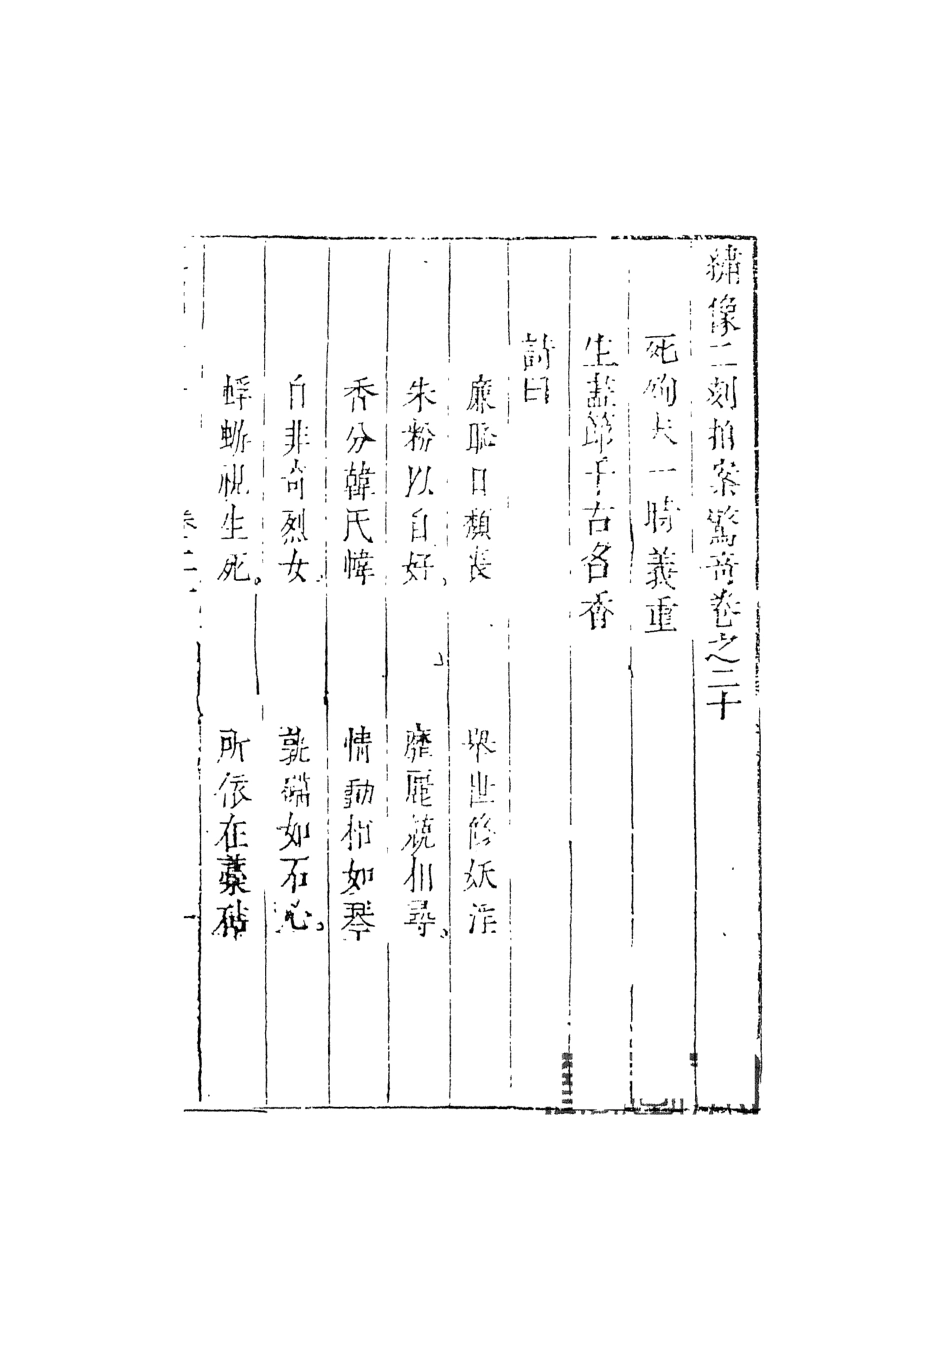 繡像二刻拍案驚奇卷之二十
死殉夫一時義重
生盡節千古名香
詩曰
廉恥日頹喪　舉世修妖淫
朱粉以自好、靡麗競相尋、
香分韓氏幃　情動相如琴
自非奇烈女、孰礪如石心。
蜉蝣視生死。所依在藁砧
卷二十
一